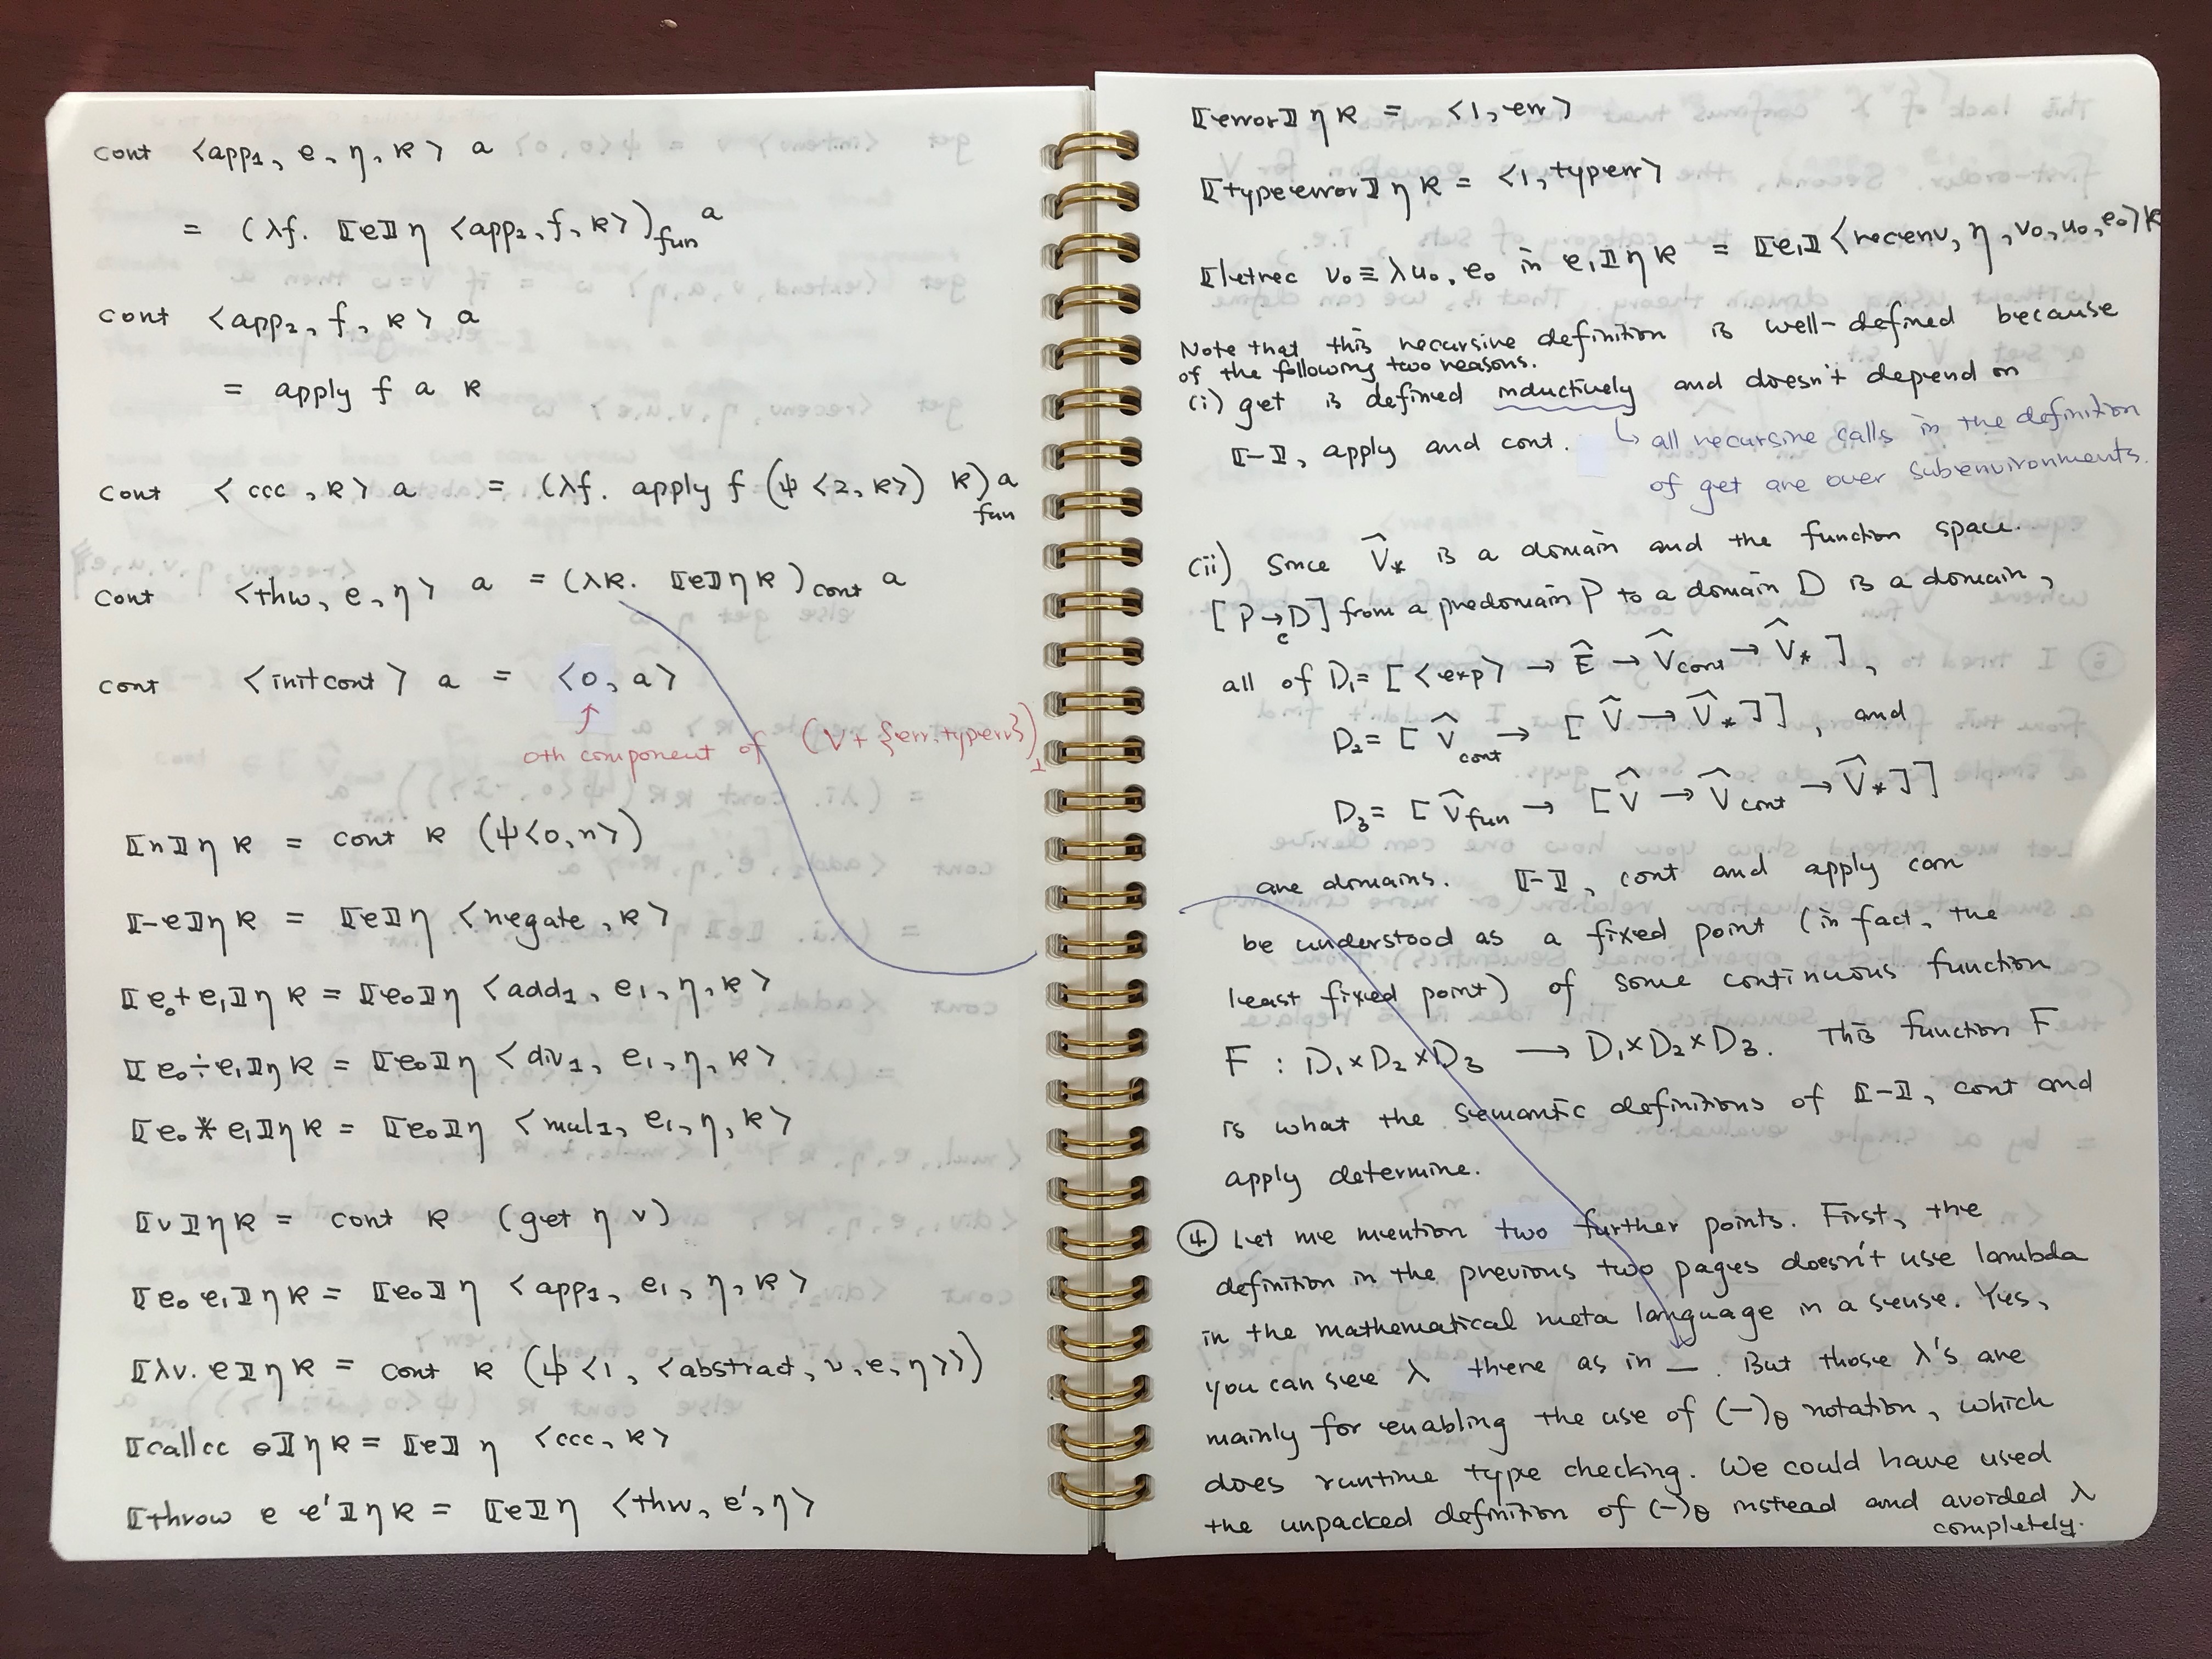 cont <app₁, e, η, κ> a
= (λf. ⟦e⟧η <app₂, f, κ>)fun a
cont <app₂, f, κ> a
= apply f a κ
cont <ccc, κ> a = (λf. apply f (ψ<2, κ>) κ)fun a
cont <thw, e, η> a = (λκ. ⟦e⟧ηκ)cont a
cont <initcont> a = <0, a>
↑
0th component of (V + {err, typerr})⊥
⟦n⟧ηκ = cont κ (ψ<0, n>)
⟦-e⟧ηκ = ⟦e⟧η <negate, κ>
⟦e₀+e₁⟧ηκ = ⟦e₀⟧η <add₁, e₁, η, κ>
⟦e₀÷e₁⟧ηκ = ⟦e₀⟧η <div₁, e₁, η, κ>
⟦e₀*e₁⟧ηκ = ⟦e₀⟧η <mul₁, e₁, η, κ>
⟦v⟧ηκ = cont κ (get η v)
⟦e₀ e₁⟧ηκ = ⟦e₀⟧η <app₁, e₁, η, κ>
⟦λv. e⟧ηκ = cont κ (ψ<1, <abstract, v, e, η>>)
⟦callcc e⟧ηκ = ⟦e⟧η <ccc, κ>
⟦throw e e'⟧ηκ = ⟦e⟧η <thw, e', η>
⟦error⟧ηκ = <1, err>
⟦typeerror⟧ηκ = <1, typerr>
⟦letrec v₀ ≡ λu₀, e₀ in e₁⟧ηκ = ⟦e₁⟧<recenv, η, v₀, u₀, e₀>κ
Note that this recursive definition is well-defined because
of the following two reasons.
(i) get is defined inductively and doesn't depend on
⟦-⟧, apply and cont.
↳ all recursive calls in the definition
of get are over subenvironments.
(ii) Since V̂* is a domain and the function space.
[P →c D] from a predomain P to a domain D is a domain,
all of D₁ = [<exp> → Ê → V̂cont → V̂*],
D₂ = [V̂cont → [V̂ → V̂*]], and
D₃ = [V̂fun → [V̂ → V̂cont → V̂*]]
are domains. ⟦-⟧, cont and apply can
be understood as a fixed point (in fact, the
least fixed point) of some continuous function
F : D₁×D₂×D₃ ⟶ D₁×D₂×D₃. This function F
is what the semantic definitions of ⟦-⟧, cont and
apply determine.
④ Let me mention two further points. First, the
definition in the previous two pages doesn't use lambda
in the mathematical meta language in a sense. Yes,
you can see λ there as in —. But those λ's are
mainly for enabling the use of (-)θ notation, which
does runtime type checking. We could have used
the unpacked definition of (-)θ instead and avoided λ
completely.